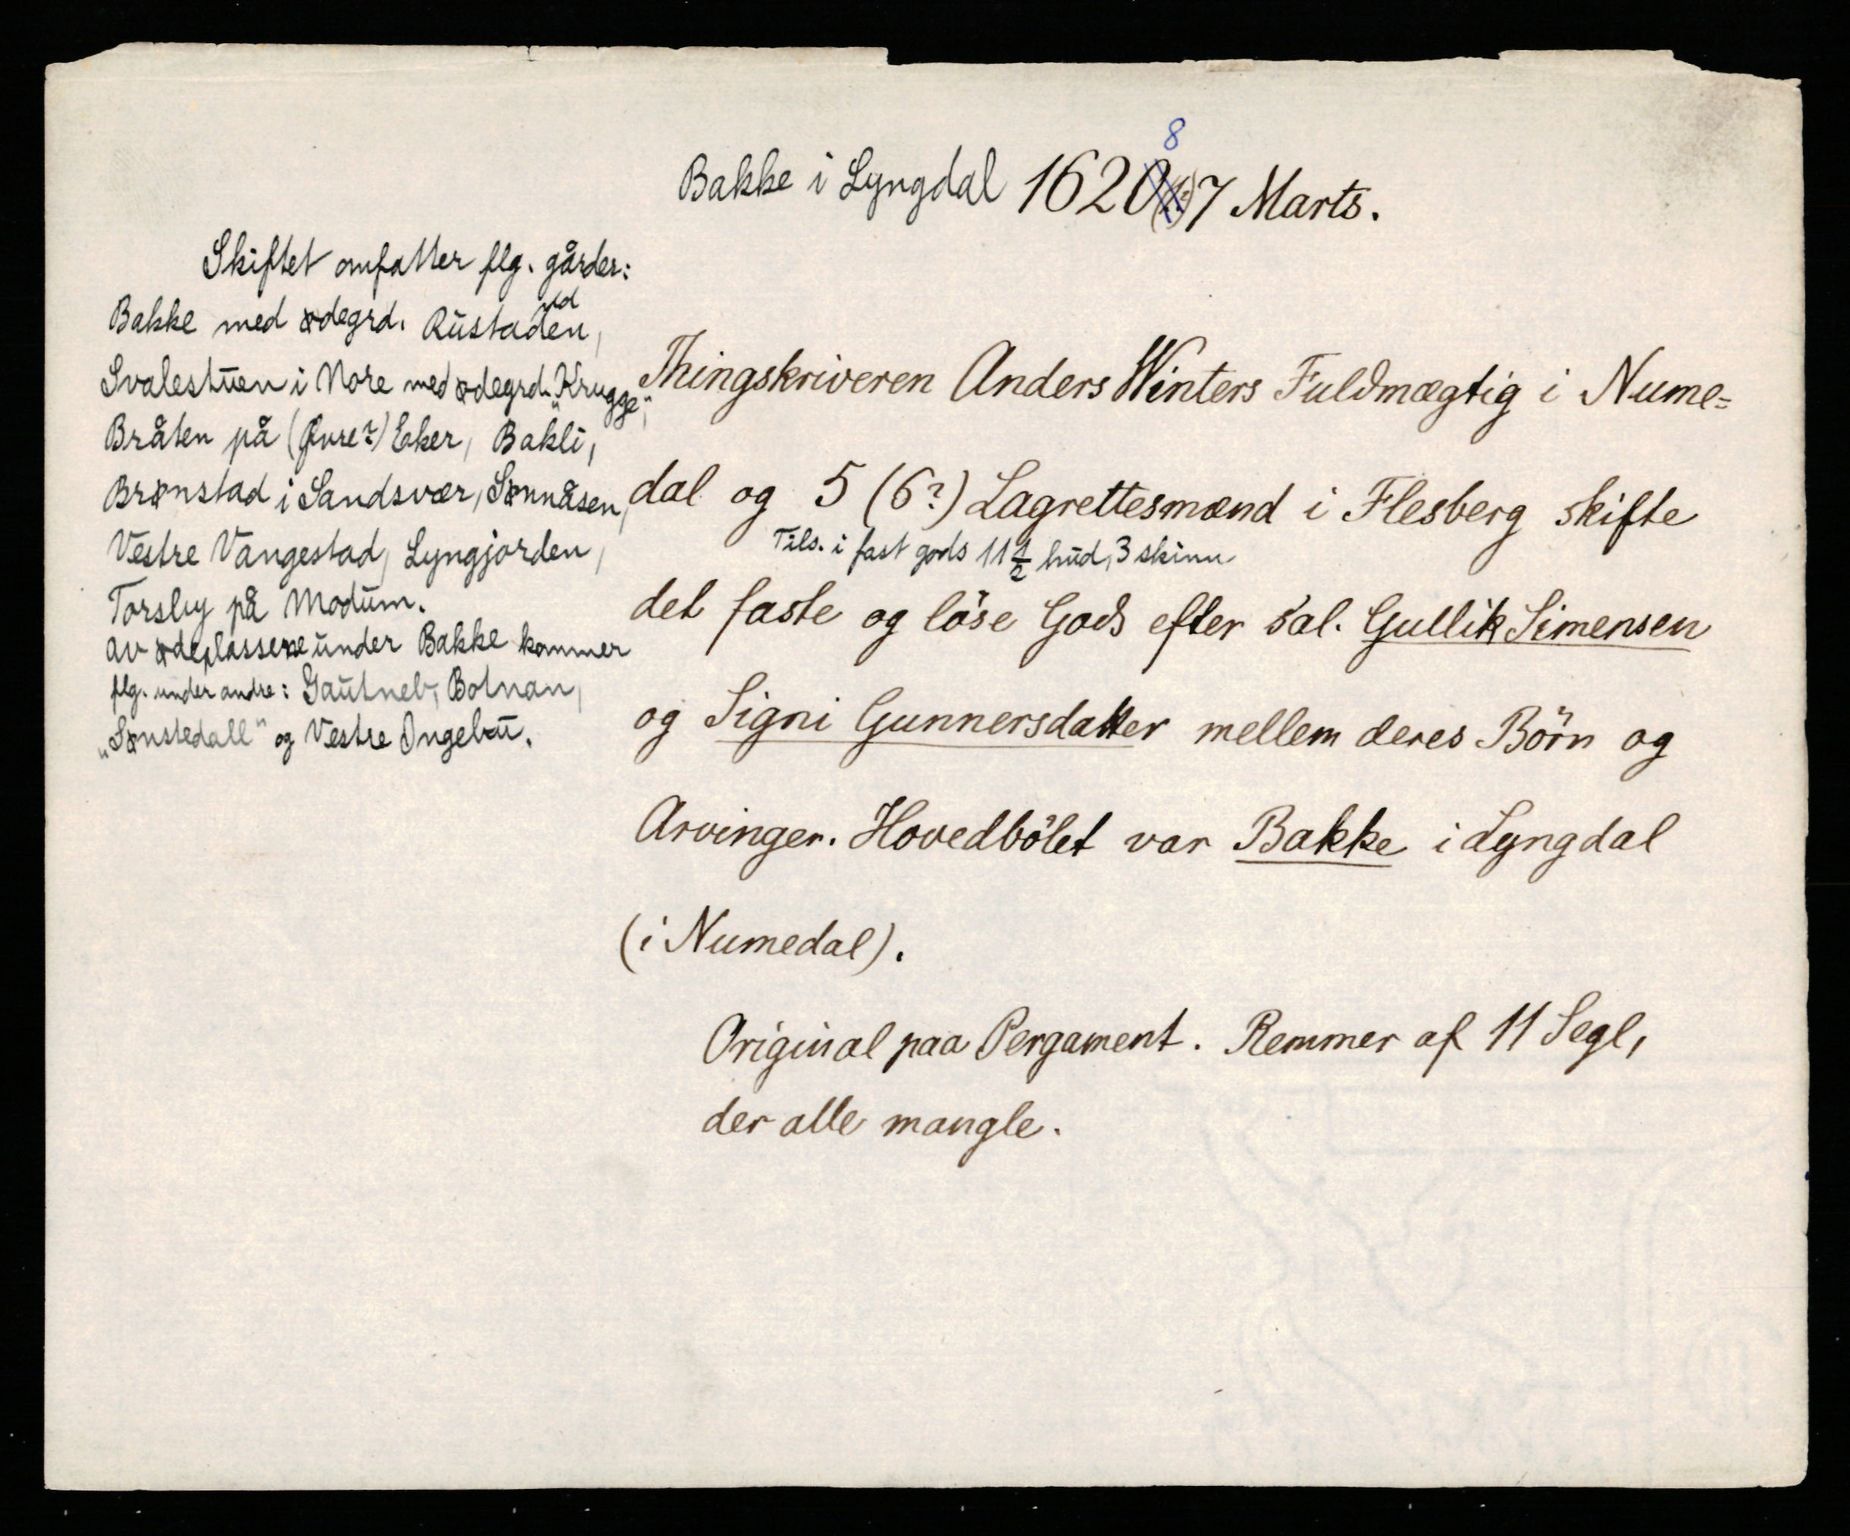 8
Bakke i Lyngdal 1620(1?) 7 Marts.
Skiftet omfatter flg. gårder:
Bakke med ødegrd. Rustaden,
ud
Svalestuen i Nore med ødegrd. „Krugge",
Bråten på (Øvre?) Eker, Bakli,
Brønstad i Sandsvær, Sønnåsen,
Vestre Vangestad, Lyngjorden,
Torsby på Modum.
Av ødeplassene under Bakke kommer
flg. under andre: Gautneb, Botnan,
„Sønstedall" og Vestre Ingebau.
Thingskriveren Anders Winters Fuldmægtig i Nume=
dal og 5 (6?) Lagrettesmænd i Flesberg skifte
Tils. i fast gods 11 1/2 hud, 3 skinn
det faste og löse Gods efter sal. Gullik Simensen
og Signi Gunnersdatter mellem deres Börn og
Arvinger. Hovedbölet var Bakke i Lyngdal
(i Numedal).
Original paa Pergament. Remmer af 11 Segl,
der alle mangle.